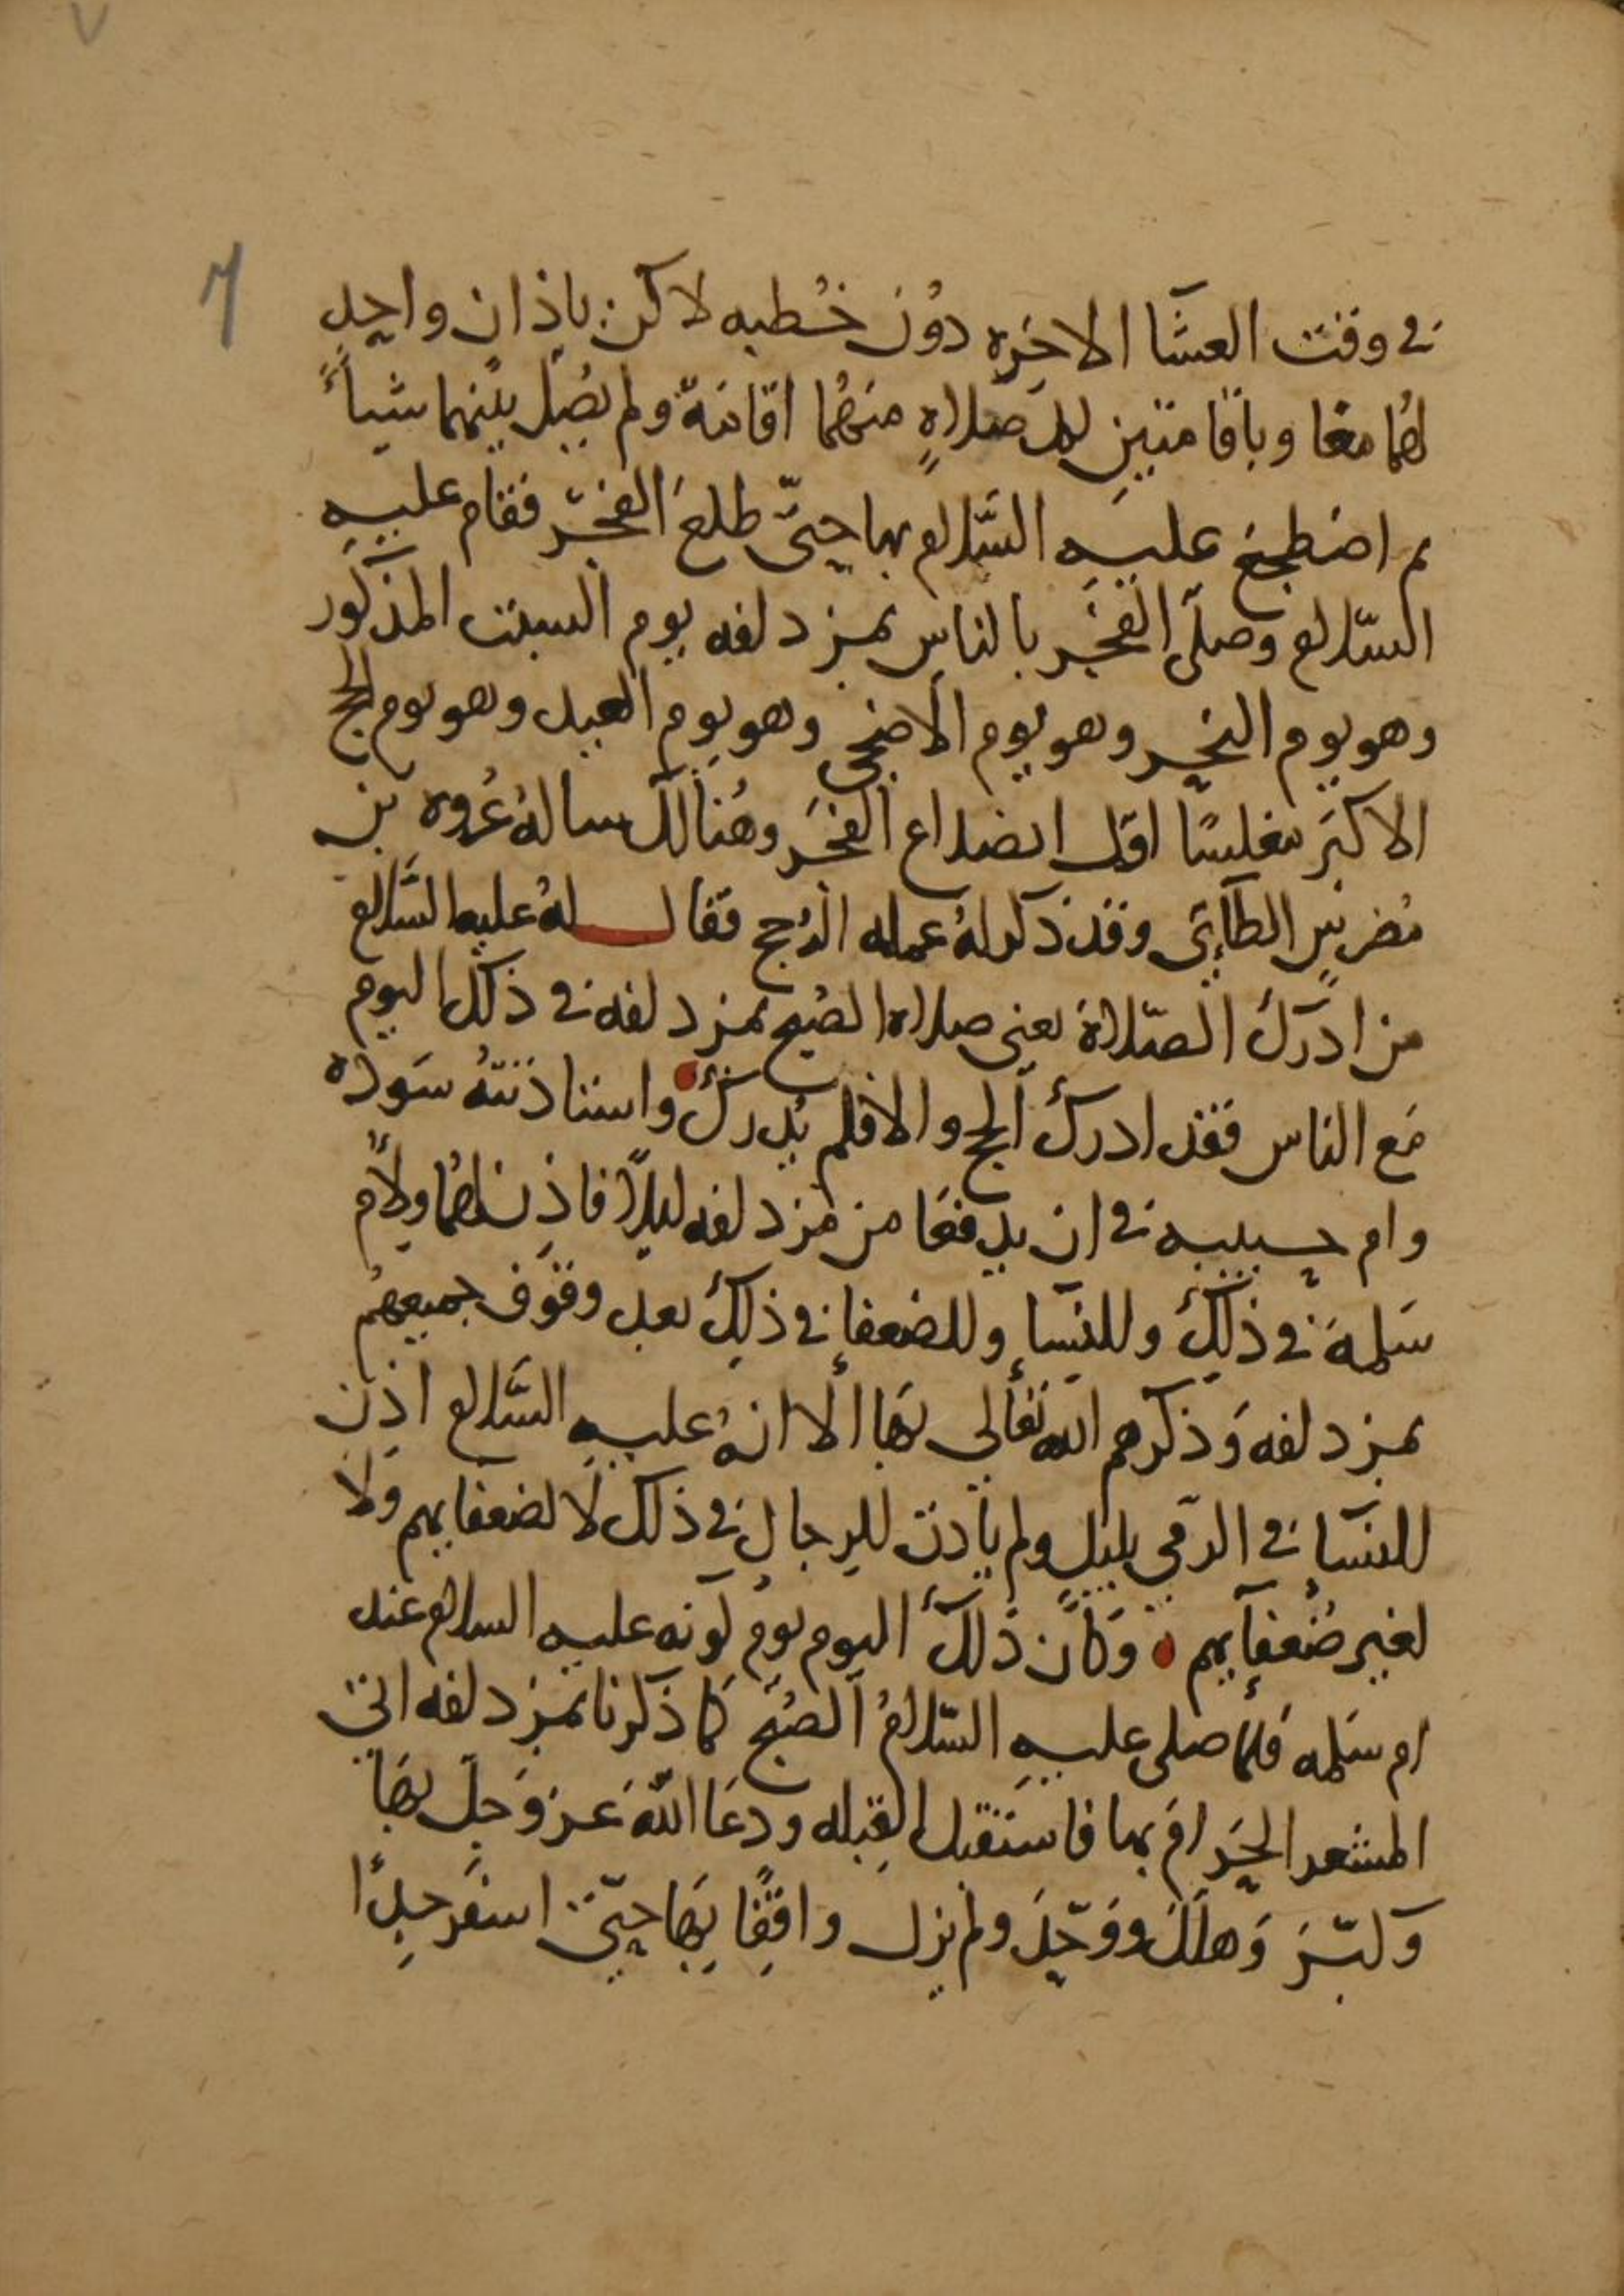 ٧
7
في وقت العشَا الاخِرَه دوُن خُطبه لاكن باِذان واحِدٍ
لهُما معًا وباقامتينِ لكل صلاةٍ منهُما اقامَة ولم يصُلِ بينهما شياً
ثم اضطجعَ عليهِ السَّلام بها حتّى طلعَ الفجْر فقام عليهِ
السّلام وصلّى الفجْر بالناسِ بمزدلفه يوم السبت المذكور
وهو يوم النحر وهو يوم الاضحى وهو يوم العيد وهو يوم الحج
الاكبَر مغلسًا اوّل انصداع الفجَر وهُنالك سالهُ عُروه بن
مُضرسٍ الطآئي وقد ذكر لهُ عمله الحج فقال لهُ عليه السَّلام
من ادرَك الصّلاة يعني صلاه الصُبح بمزدلفه في ذلك اليوم
مَع الناس فقد ادرك الحج والا فلم يُدرك واستاذنتهُ سَودَه
وام حبيبه في ان يدفعَا من مُزدلفه ليلاً فاذِن لهُما ولاُم
سَلمة في ذلِكَ وللنسَا وللضعفا في ذلِك بعد وقوَف جميعهُم
بمزدلفه وَذكرهم الله تعَالى بهَا الا انهُ عليهِ السَّلام اذِن
للنسَا في الرّمي بليل ولم ياذن للرجالِ في ذلك لا لضعفايهم ولا
لغير ضُعفآيهم وَكان ذلكَ اليوم يوم كونه عليه السلام عند
ام سَلمه فلمّا صلى عليهِ السّلامُ الصُبْح كما ذكرنا بمزدلفه اتى
المشعر الحَرامَ بها فاستقبل القِبله ودعَا اللهَ عَز وَجلّ بهَا
وكبّرَ وَهللَ ووَحّدَ ولم يزل واقِفًا بِهَا حتّى اسفَر جِداً